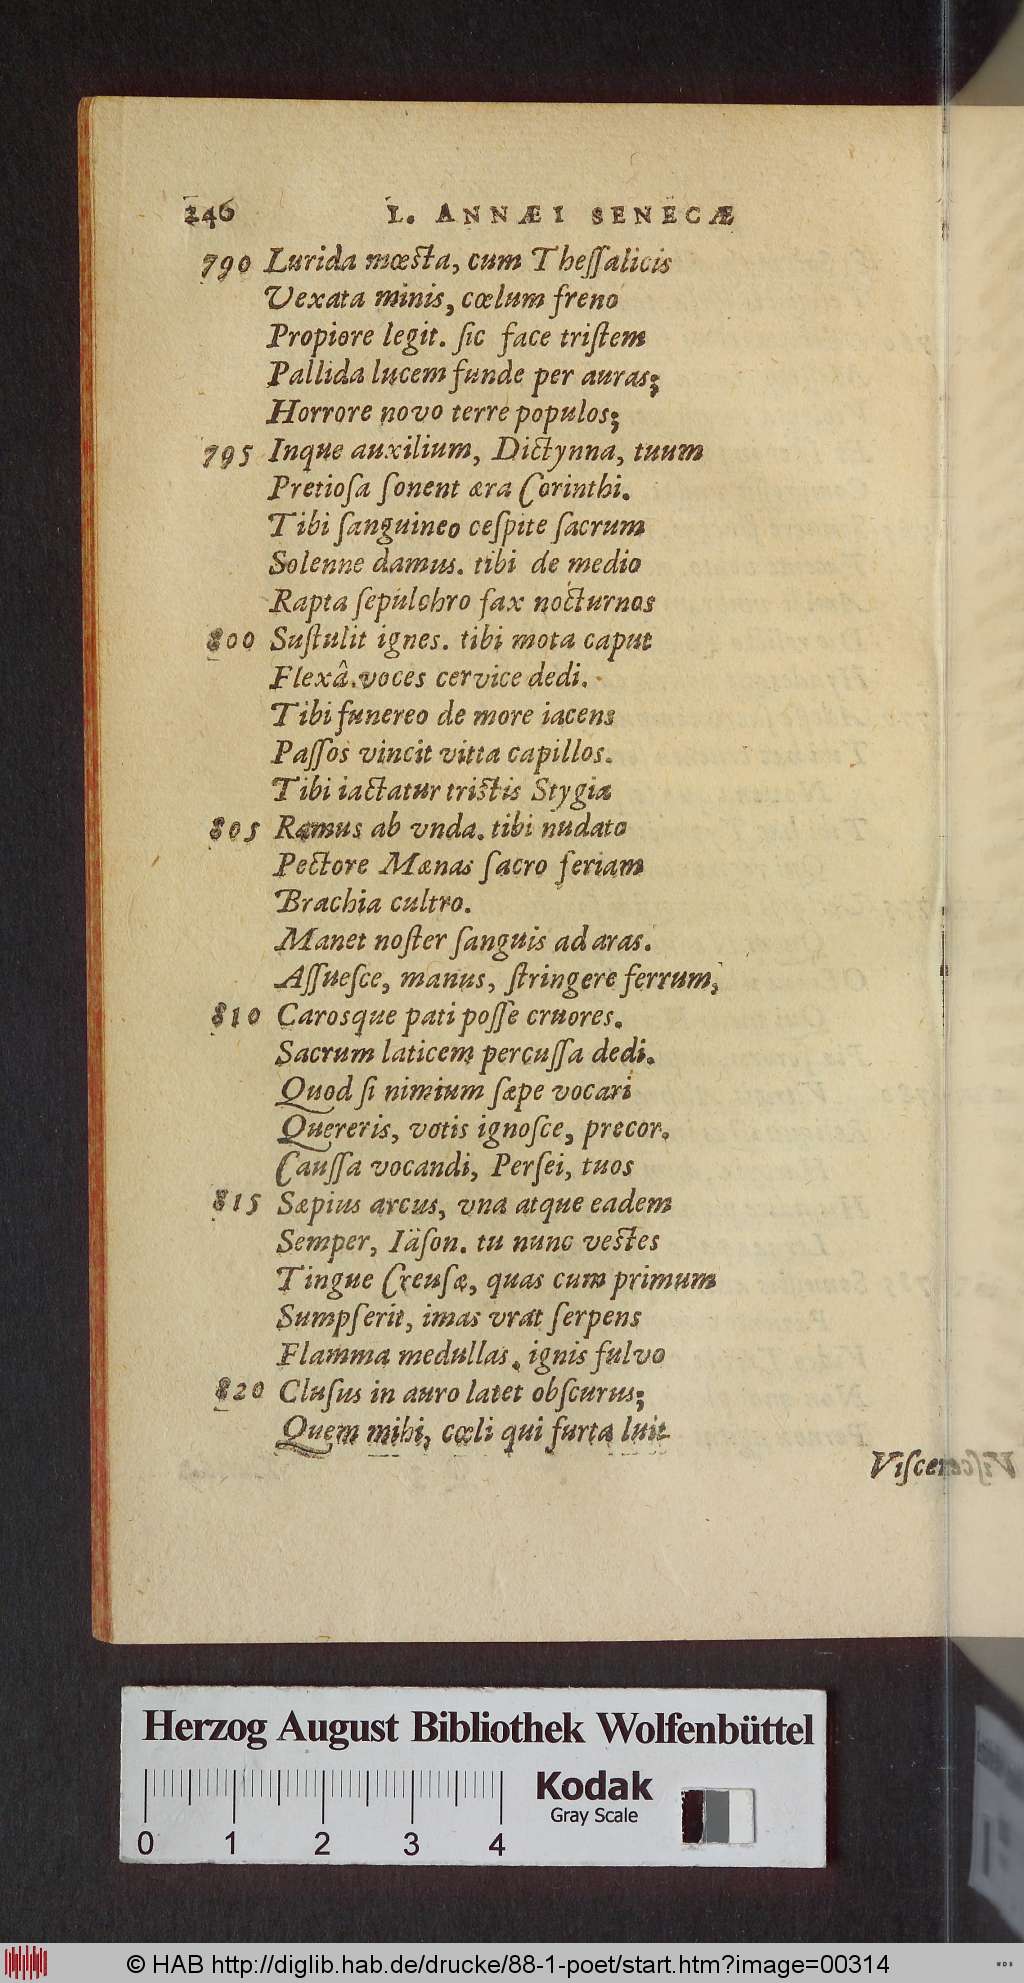 246 L. ANNÆI SENECÆ
790 Lurida mœsta, cum Theſſalicis
Vexata minis, cœlum freno
Propiore legit. ſic face triſtem
Pallida lucem funde per auras;
Horrore novo terre populos;
795 Inque auxilium, Dictynna, tuum
Pretioſa ſonent æra Corinthi.
Tibi ſanguineo ceſpite ſacrum
Solenne damus. tibi de medio
Rapta ſepulchro fax nocturnos
800 Suſtulit ignes. tibi mota caput
Flexâ voces cervice dedi.
Tibi funereo de more iacens
Paſſos vincit vitta capillos.
Tibi iactatur tristis Stygia
805 Ramus ab vnda. tibi nudato
Pectore Mænas ſacro feriam
Brachia cultro.
Manet noſter ſanguis ad aras.
Aſſueſce, manus, ſtringere ferrum,
810 Carosque pati poſſe cruores.
Sacrum laticem percuſſa dedi.
Quod ſi nimium ſæpe vocari
Quereris, votis ignoſce, precor.
Cauſſa vocandi, Perſei, tuos
815 Sæpius arcus, vna atque eadem
Semper, Iäſon. tu nunc vestes
Tingue Creuſæ, quas cum primum
Sumpſerit, imas vrat ſerpens
Flamma medullas. ignis fulvo
820 Cluſus in auro latet obſcurus;
Quem mihi, cœli qui furta luit
Viſcere
Herzog August Bibliothek Wolfenbüttel
Kodak
Gray Scale
0 1 2 3 4
© HAB http://diglib.hab.de/drucke/88-1-poet/start.htm?image=00314